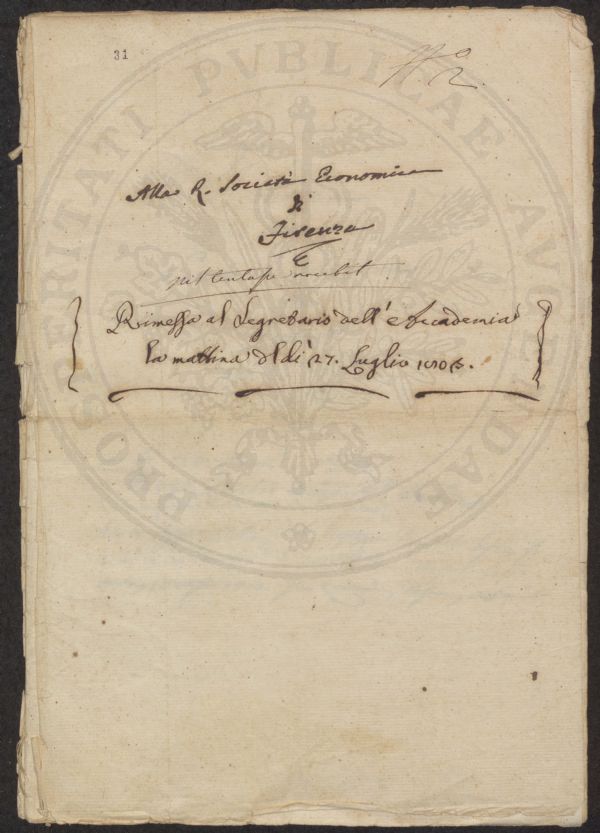 31
N.o 2
Alla R. Società Economica
di
Firenze
nil tentasse nocebit.
Rimessa al Segretario dell'Accademia
la mattina del dì 27. Luglio 1805.
PROSPERITATI PVBLICAE AVGENDAE